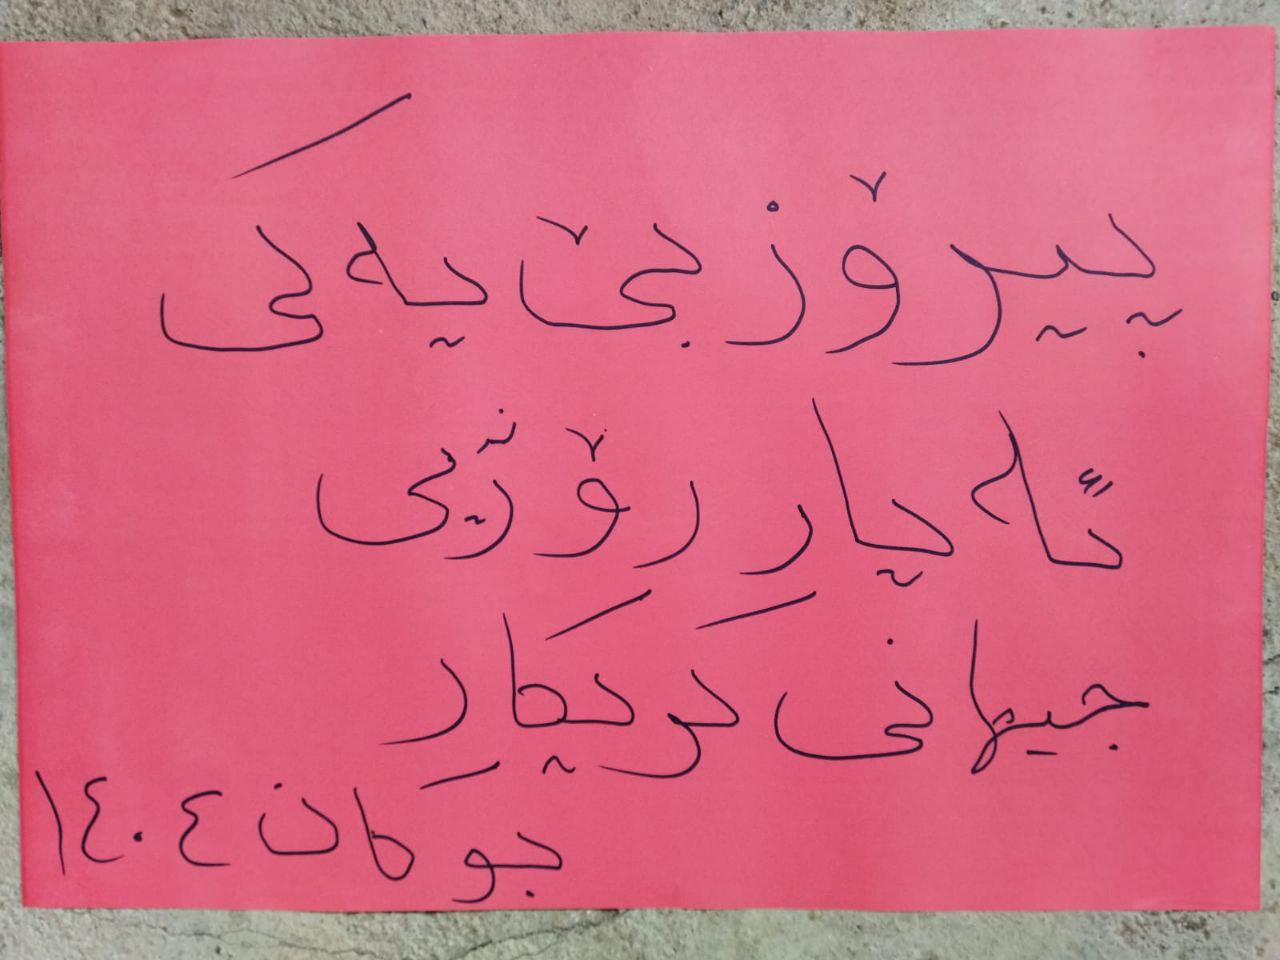 پیرۆز بێ یەکی
ئەیار رۆژیی
جیهانی کریکار
بوکان ١٤٠٤